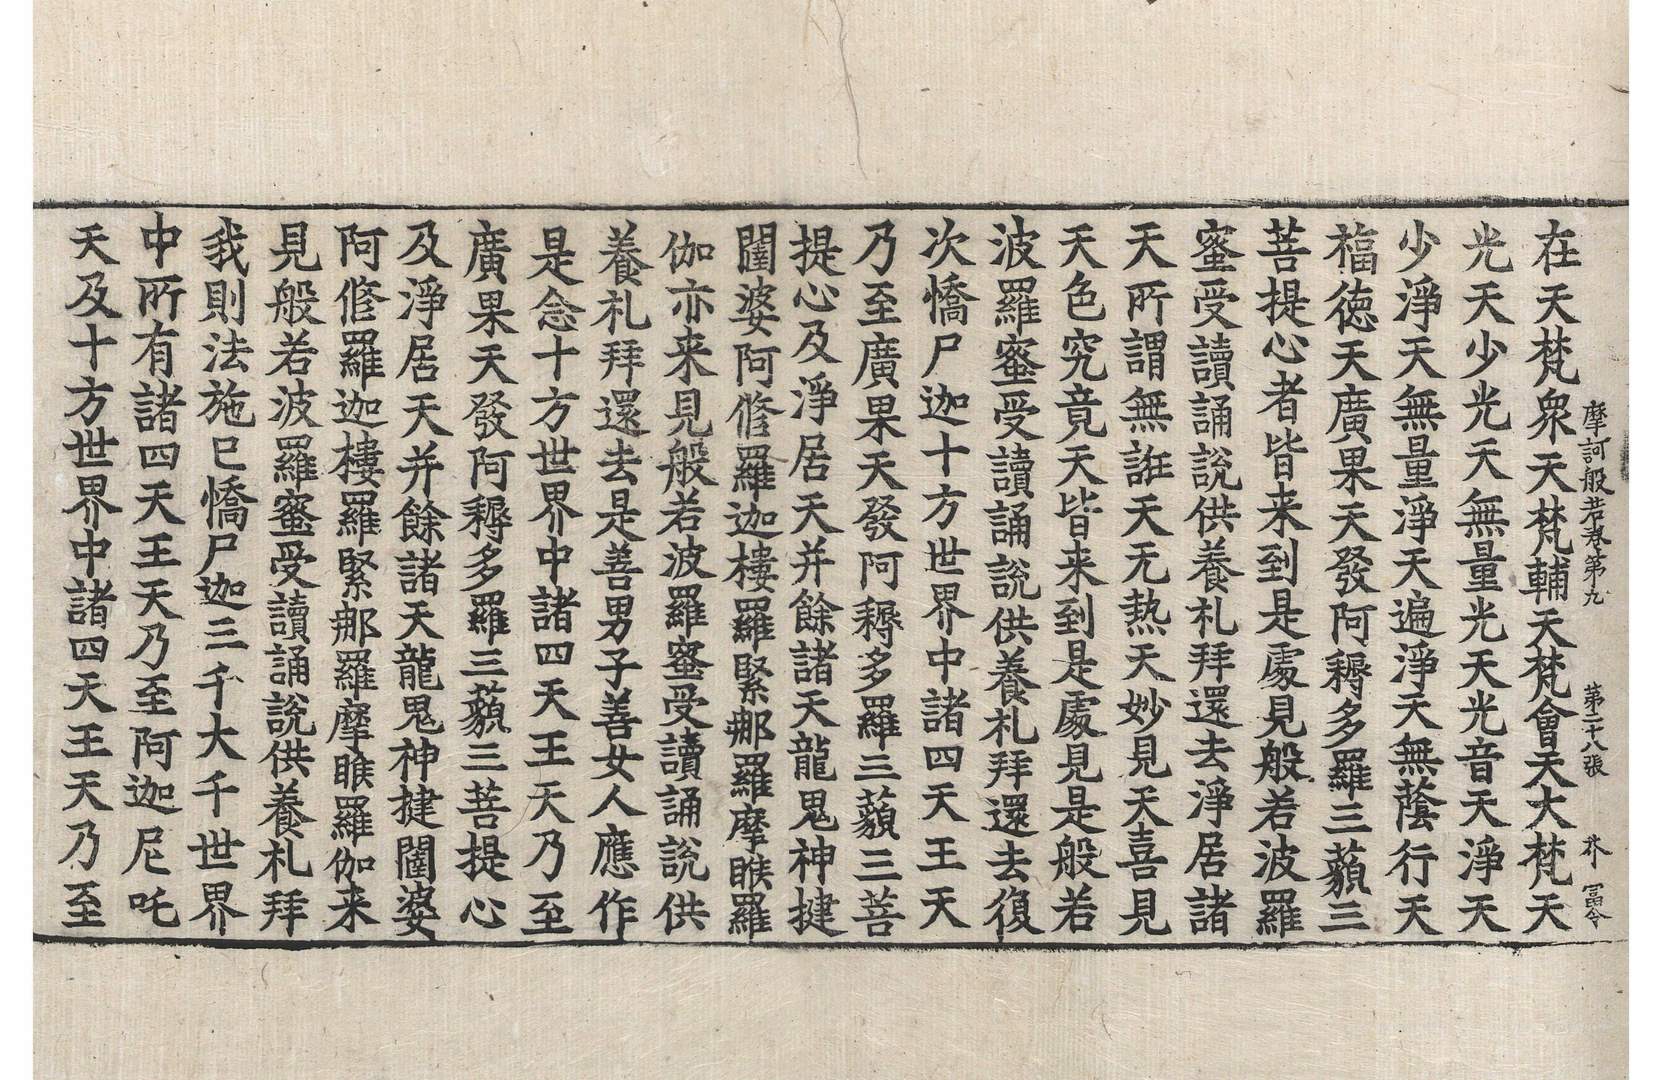 摩訶般若卷第九　第二十八張　芥　冨令
在天梵衆天梵輔天梵會天大梵天
光天少光天無量光天光音天淨天
少淨天無量淨天遍淨天無蔭行天
福德天廣果天發阿耨多羅三藐三
菩提心者皆来到是處見般若波羅
蜜受讀誦說供養礼拜還去淨居諸
天所謂無誑天无熱天妙見天喜見
天色究竟天皆来到是處見是般若
波羅蜜受讀誦說供養礼拜還去復
次憍尸迦十方世界中諸四天王天
乃至廣果天發阿耨多羅三藐三菩
提心及淨居天并餘諸天龍鬼神揵
闥婆阿脩羅迦樓羅緊那羅摩睺羅
伽亦来見般若波羅蜜受讀誦說供
養礼拜還去是善男子善女人應作
是念十方世界中諸四天王天乃至
廣果天發阿耨多羅三藐三菩提心
及淨居天并餘諸天龍鬼神揵闥婆
阿脩羅迦樓羅緊那羅摩睺羅伽来
見般若波羅蜜受讀誦說供養礼拜
我則法施已憍尸迦三千大千世界
中所有諸四天王天乃至阿迦尼吒
天及十方世界中諸四天王天乃至